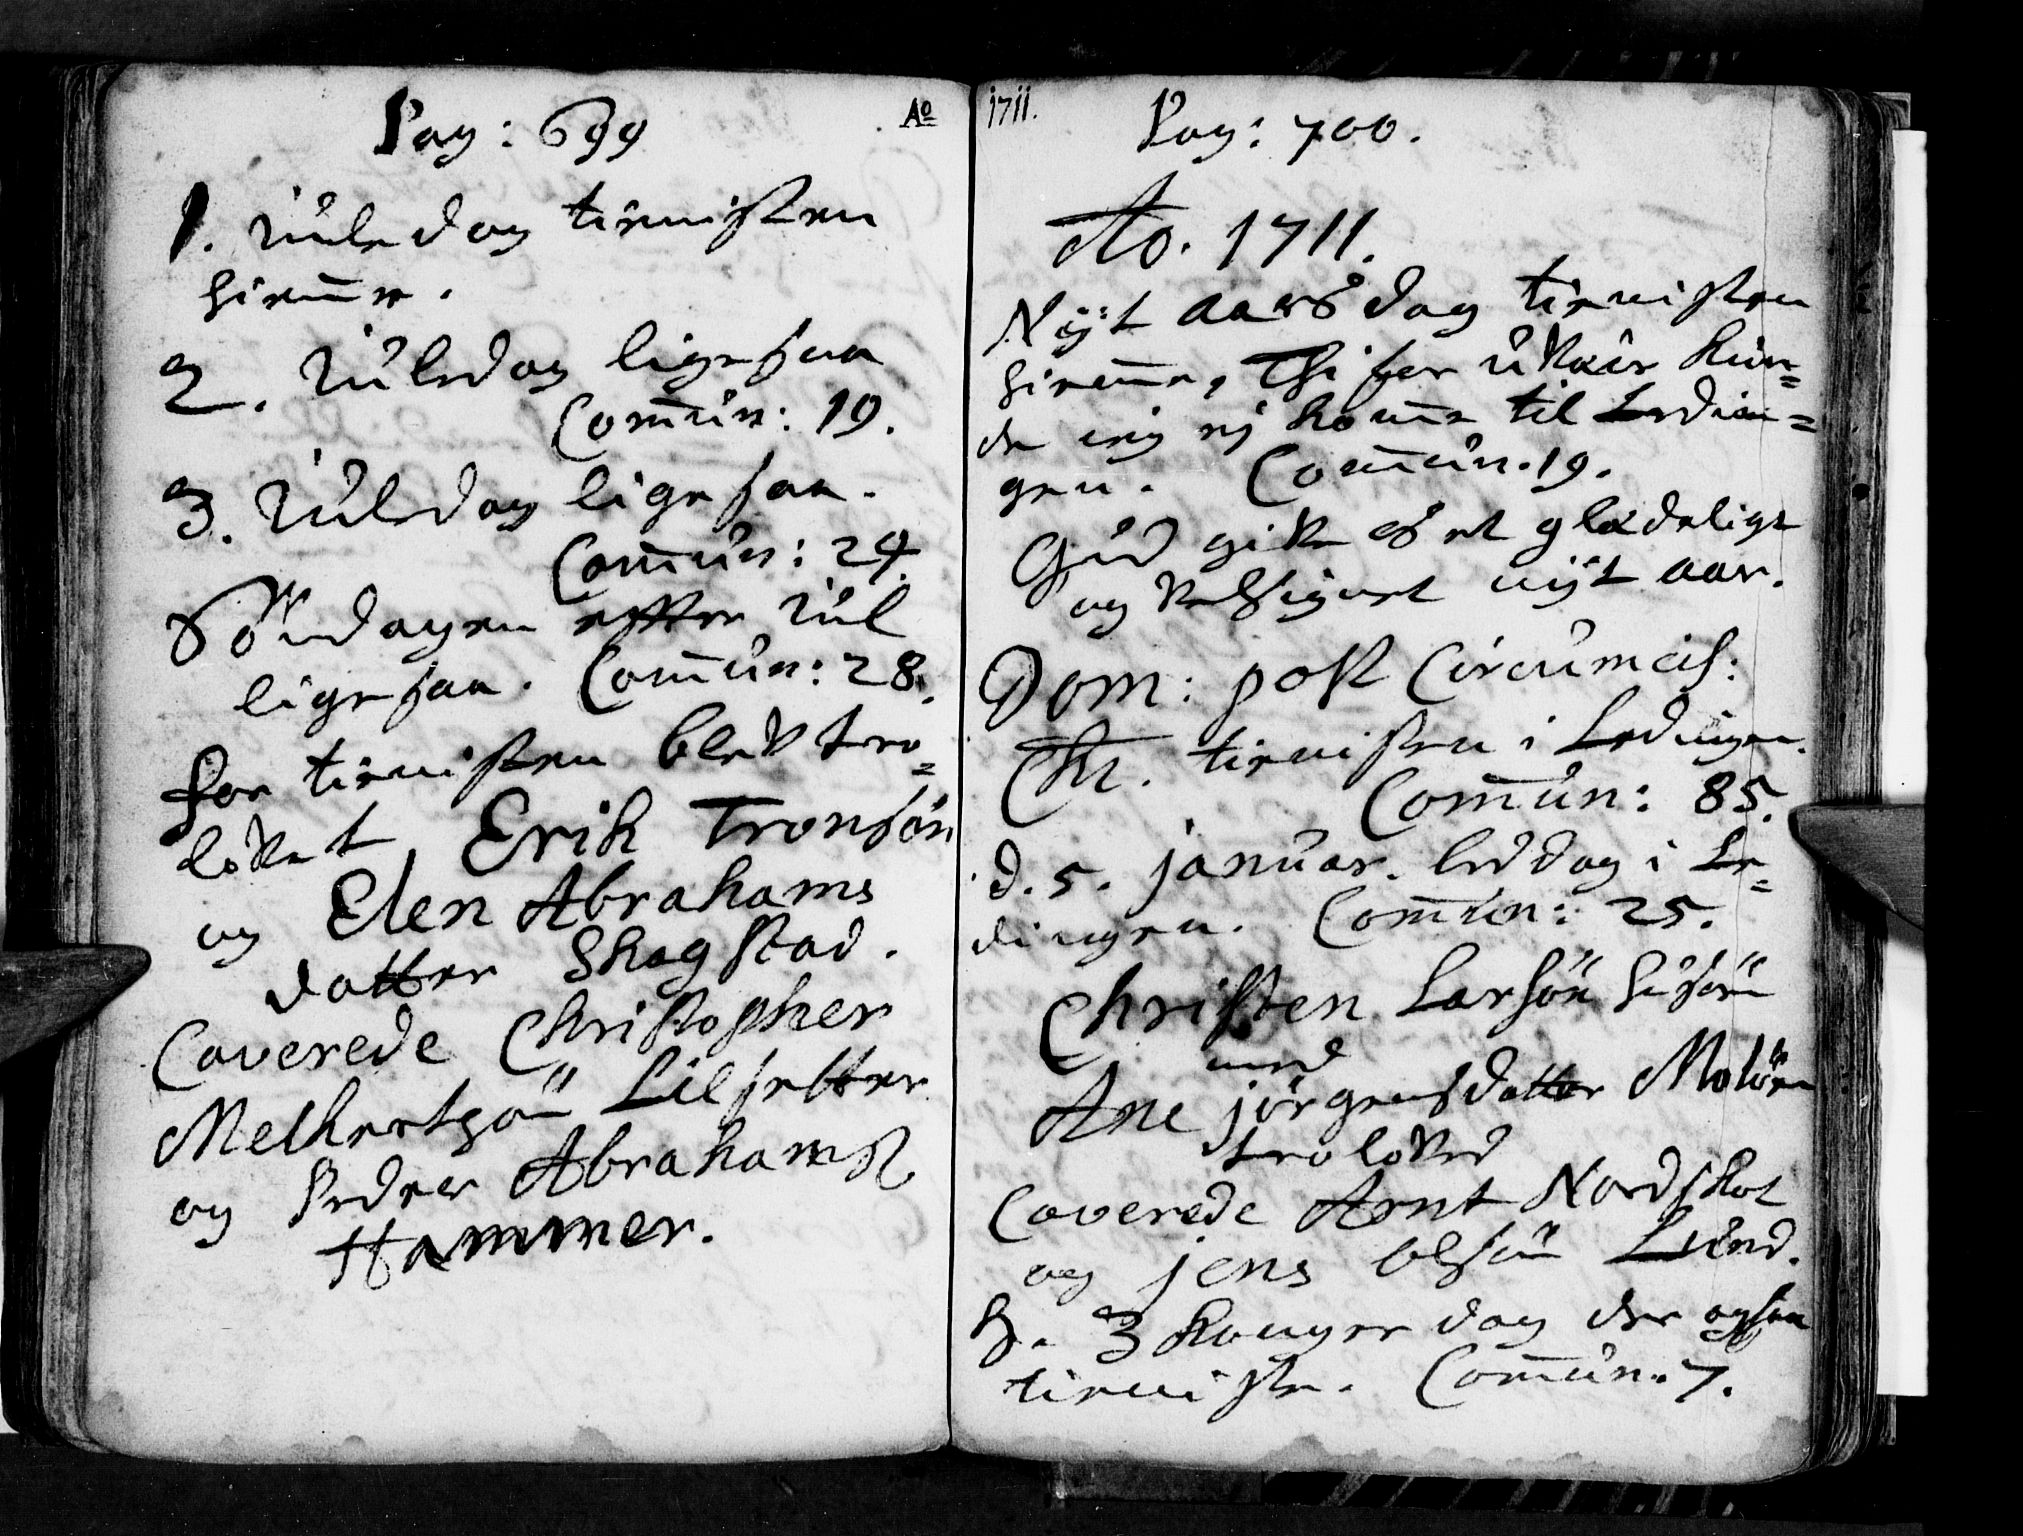 Pag: 699
Ao
1. Juledag tienisten
hiemme.
2. Juledag ligesaa
Commun: 19.
3. Juledag ligesaa.
Commun: 24.
Søndagen effter Jul
ligesaa. Commun: 28.
for tienisten blef tro=
lovet Erik Tronsøn
og Elen Abrahams
datter Skagstad.
Caverede Christopher
Melkertsøn Lilsetter
og Peder Abrahams.
Hammer.
1711.
Pag: 700.
Ao. 1711.
Nyt aars dag tienisten
hiemme, Thi for uveir kun=
de ieg ej komme til Lødin=
gen. Commun. 19.
Gud give os et glædeligt
og velsignet nyt aar.
Dom: post Circumcis:
Chr. tienisten i Lødingen.
Commun: 85.
d. 5. januar. løddag i Lø=
dingen. Commun: 25.
Christen Larsøn
med
Ane jörgensdatter
troloved
Caverede Arnt Nordskot
og jens olsøn Lund.
H. 3 Konger dag der ogsaa
tieniste. Commun. 7.